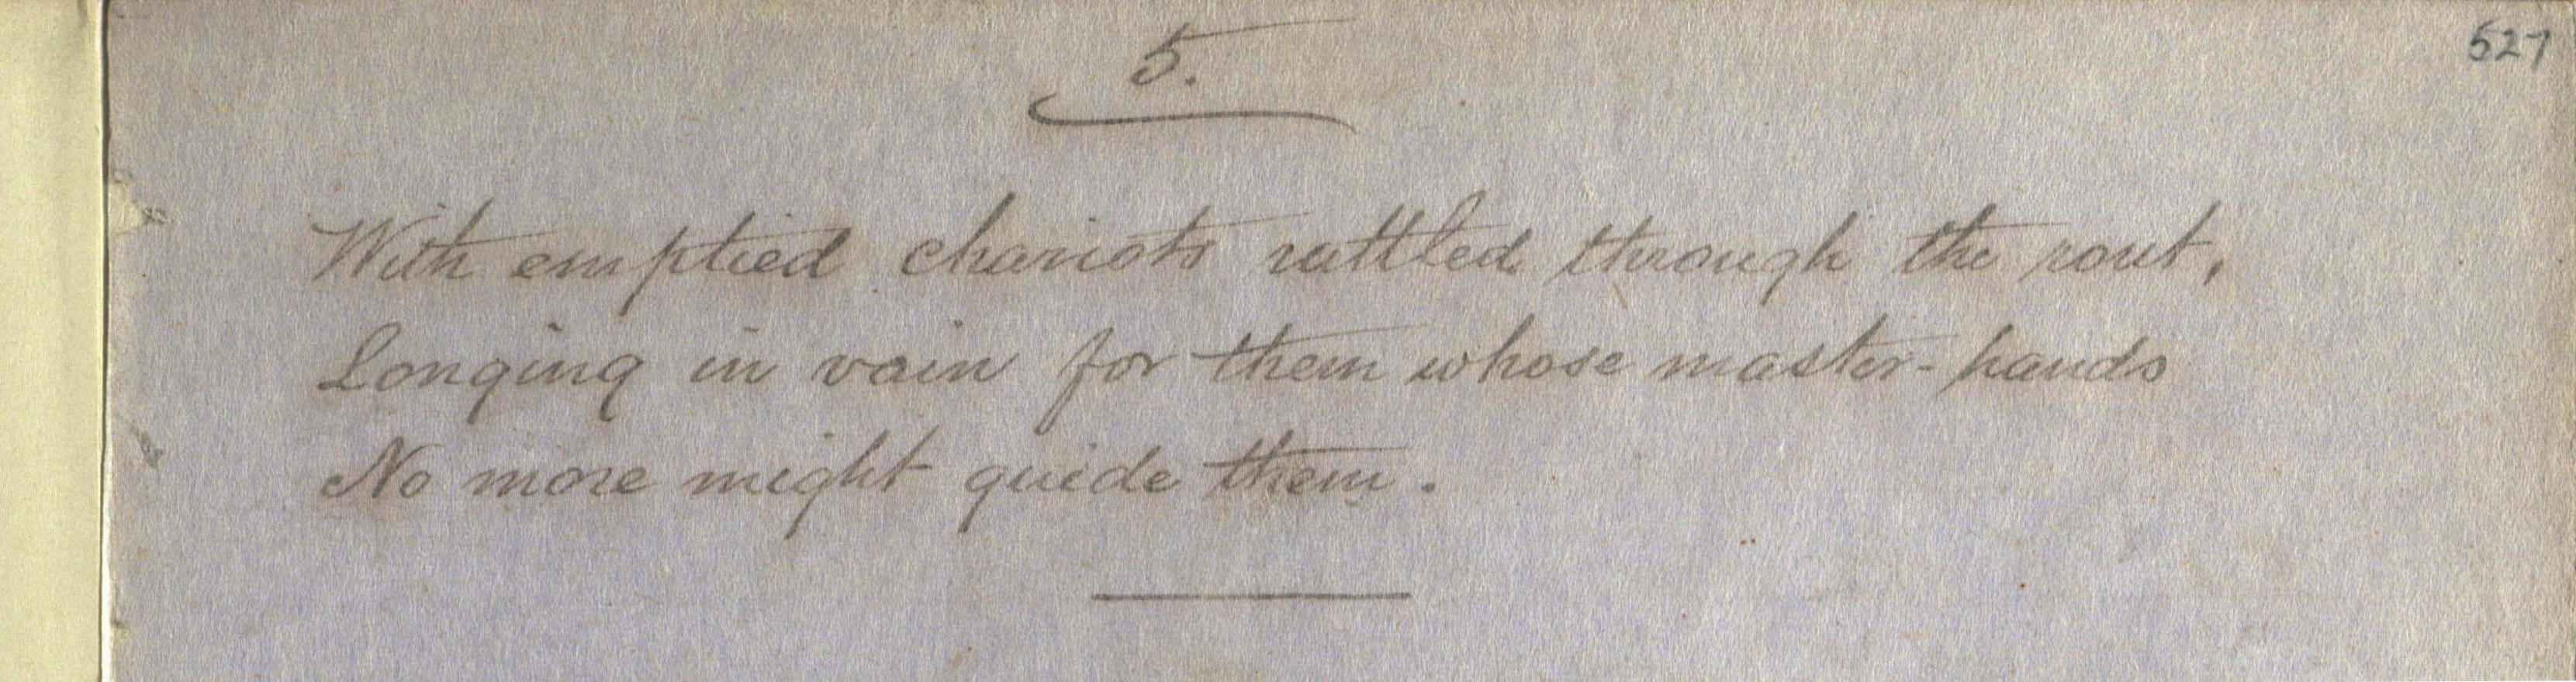 5.
527
With emptied chariots rattled through the rout,
Longing in vain for them whose master-hands
No more might guide them.